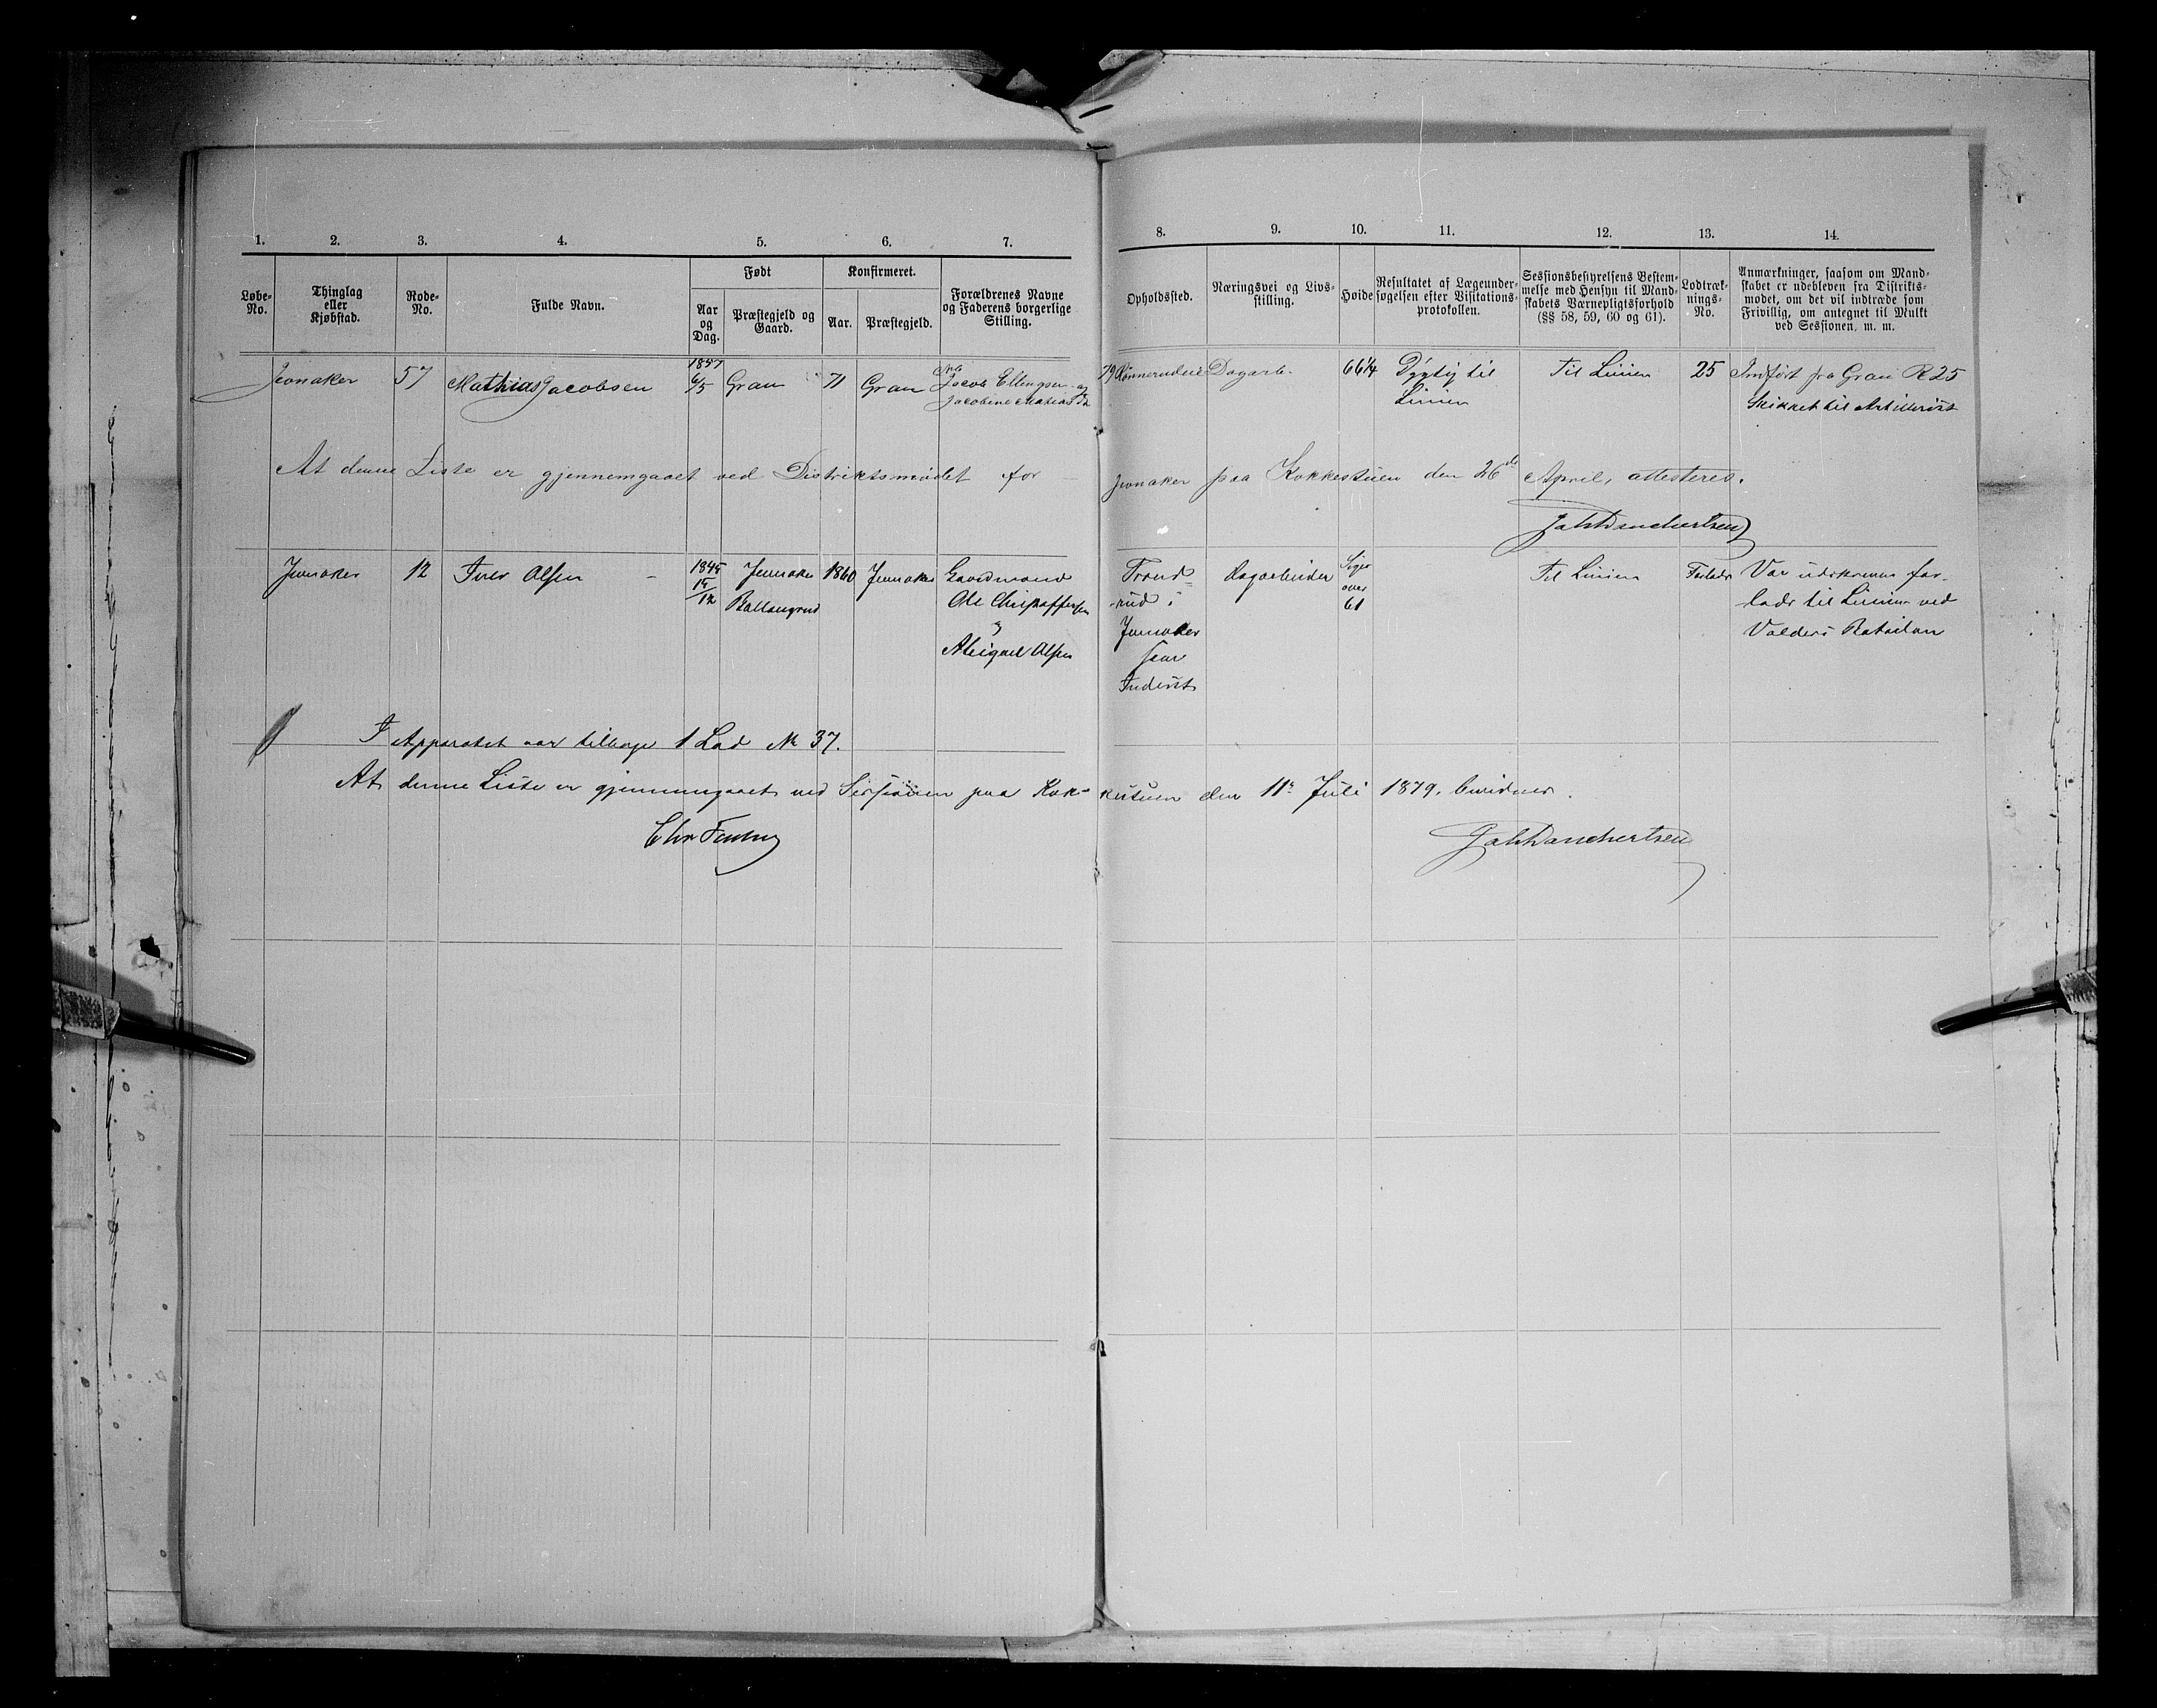 1. 2. 3. 4. 5. 6. 7. 8. 9. 10. 11. 12. 13. 14.
Løbe-
No.
Thinglag
eller
Kjøbstad.
Rode-
No.
Fulde Navn.
Født
Aar
og
Dag.
Præstegjeld og
Gaard.
Konfirmeret.
Aar.
Præstegjeld.
Forældrenes Navne
og Faderens borgerlige
Stilling.
Opholdssted.
Næringsvei og Livs-
stilling.
Høide
Resultatet af Lægeunder-
søgelsen efter Visitations-
protokollen.
Sessionsbestyrelsens Bestem-
melse med Hensyn til Mand-
skabets Værnepligtsforhold
(§§ 58, 59, 60 og 61).
Lodtræk-
nings-
No.
Anmærkninger, saasom om Mand-
skabet er udebleven fra Distrikts-
mødet, om det vil indtræde som
Frivillig, om antegnet til Mulkt
ved Sessionen, m. m.
Jevnaker 57 Mathias Jacobsen
1857
6/5
Gran 71 Gran
Jacob Ellingsen og
Jacobine Matiasd
Dagarb. 66 1/4
Dygtig til
Linien
Til Linien 25
Indført fra Gran R 25
Skikket til Artillerist
At denne Liste er gjennemgaaet ved Distriktsmødet for Jevnaker paa Kokkestuen den 26de April, attesteres.
Jevnaker 12 Iver Olsen
1845
15/12
Jevnaker
Ballangrud
1860 Jevnaker
Gaardmand
Ole Christoffersen
og
Abigael Olsen
Trond-
rud i
Jevnaker
som
Inderst
Dagarbeider
Siger
over
61
Til Linien
Var udskreven for-
lods til Linien ved
Valders Bataillon
I Apparatet var tilbage 1 Lod No 37.
At denne Liste er gjennemgaaet ved Sessionen paa Kok- kestuen den 11te Juli 1879, bevidnes.